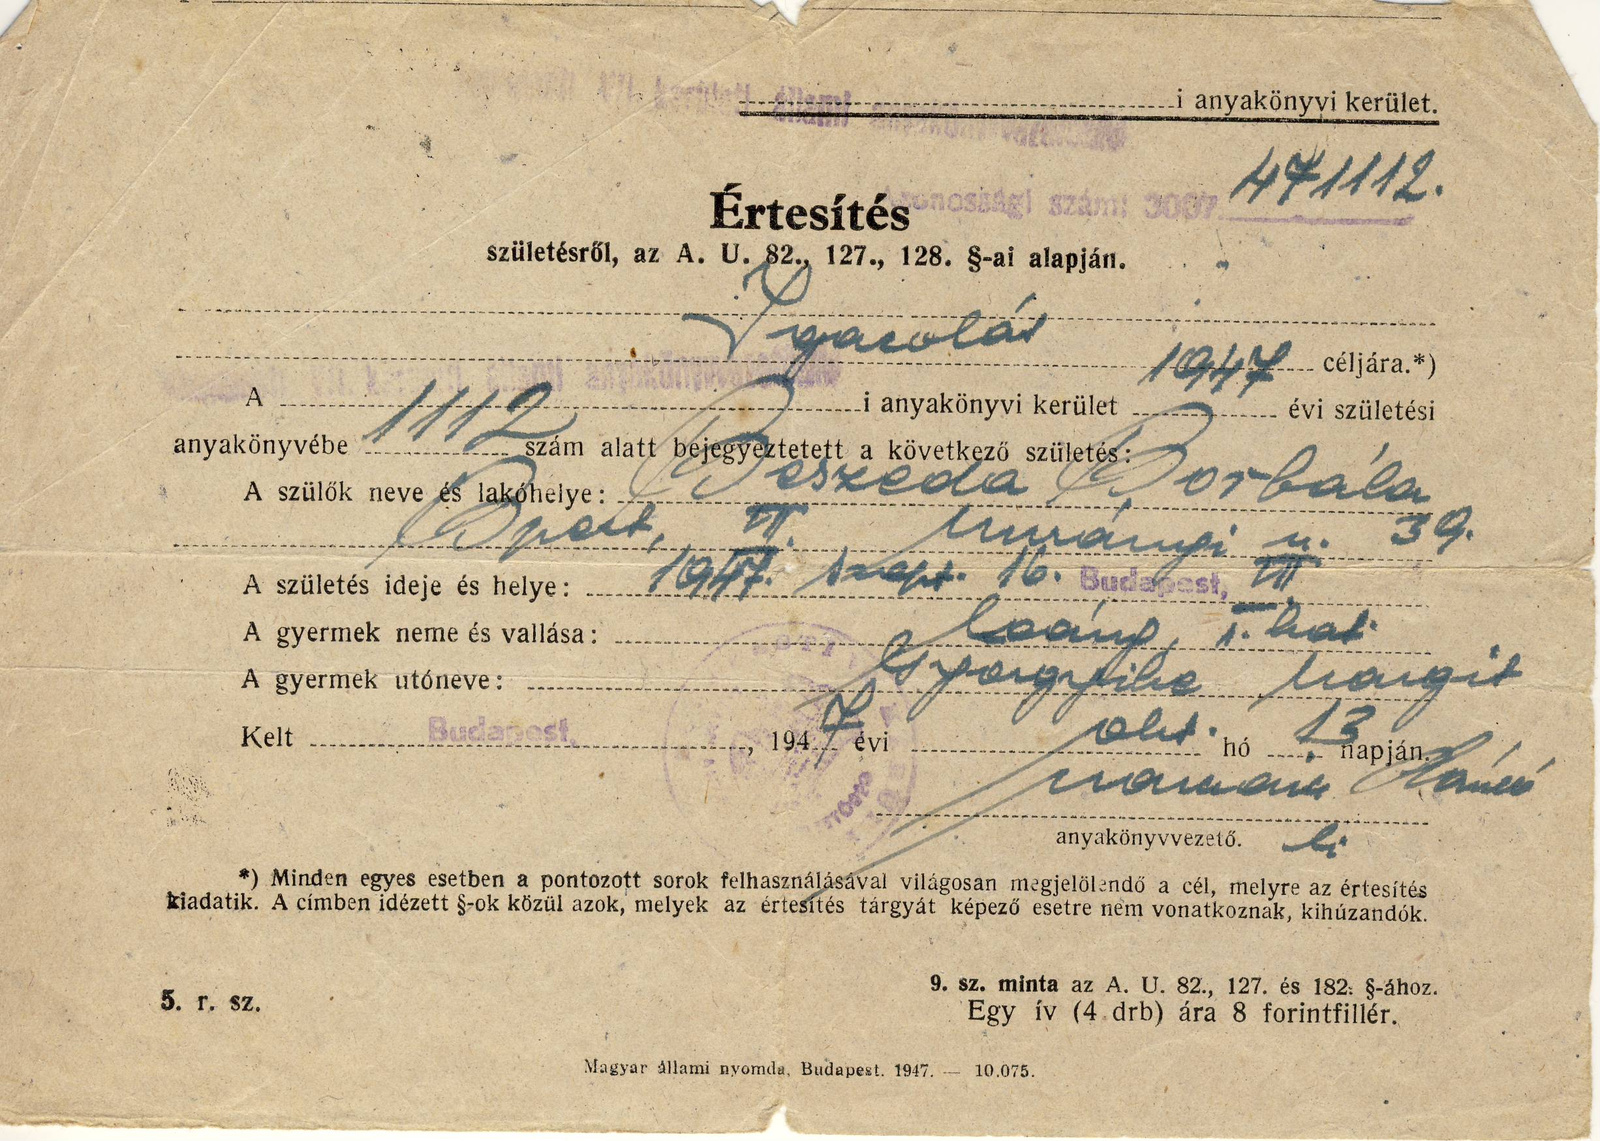 i anyakönyvi kerület.
kerületi állami
Azonossági szám: 3007 471112.
Értesítés
születésről, az A. U. 82., 127., 128. §-ai alapján.
Igazolás céljára.*)
A i anyakönyvi kerület 1947 évi születési
anyakönyvébe 1112 szám alatt bejegyeztetett a következő születés:
A szülők neve és lakóhelye: Beszeda Borbála
Bpest, VII. Murányi u. 39.
A születés ideje és helye: 1947. szept. 16. Budapest, VII.
A gyermek neme és vallása: leány, r. kat.
A gyermek utóneve: Györgyike Margit
Kelt Budapest, 1947 évi okt. hó 13 napján.
anyakönyvvezető.
*) Minden egyes esetben a pontozott sorok felhasználásával világosan megjelölendő a cél, melyre az értesítés
kiadatik. A címben idézett §-ok közül azok, melyek az értesítés tárgyát képező esetre nem vonatkoznak, kihúzandók.
5. r. sz.
9. sz. minta az A. U. 82., 127. és 182. §-ához.
Egy ív (4 drb) ára 8 forintfillér.
Magyar állami nyomda, Budapest. 1947. — 10.075.